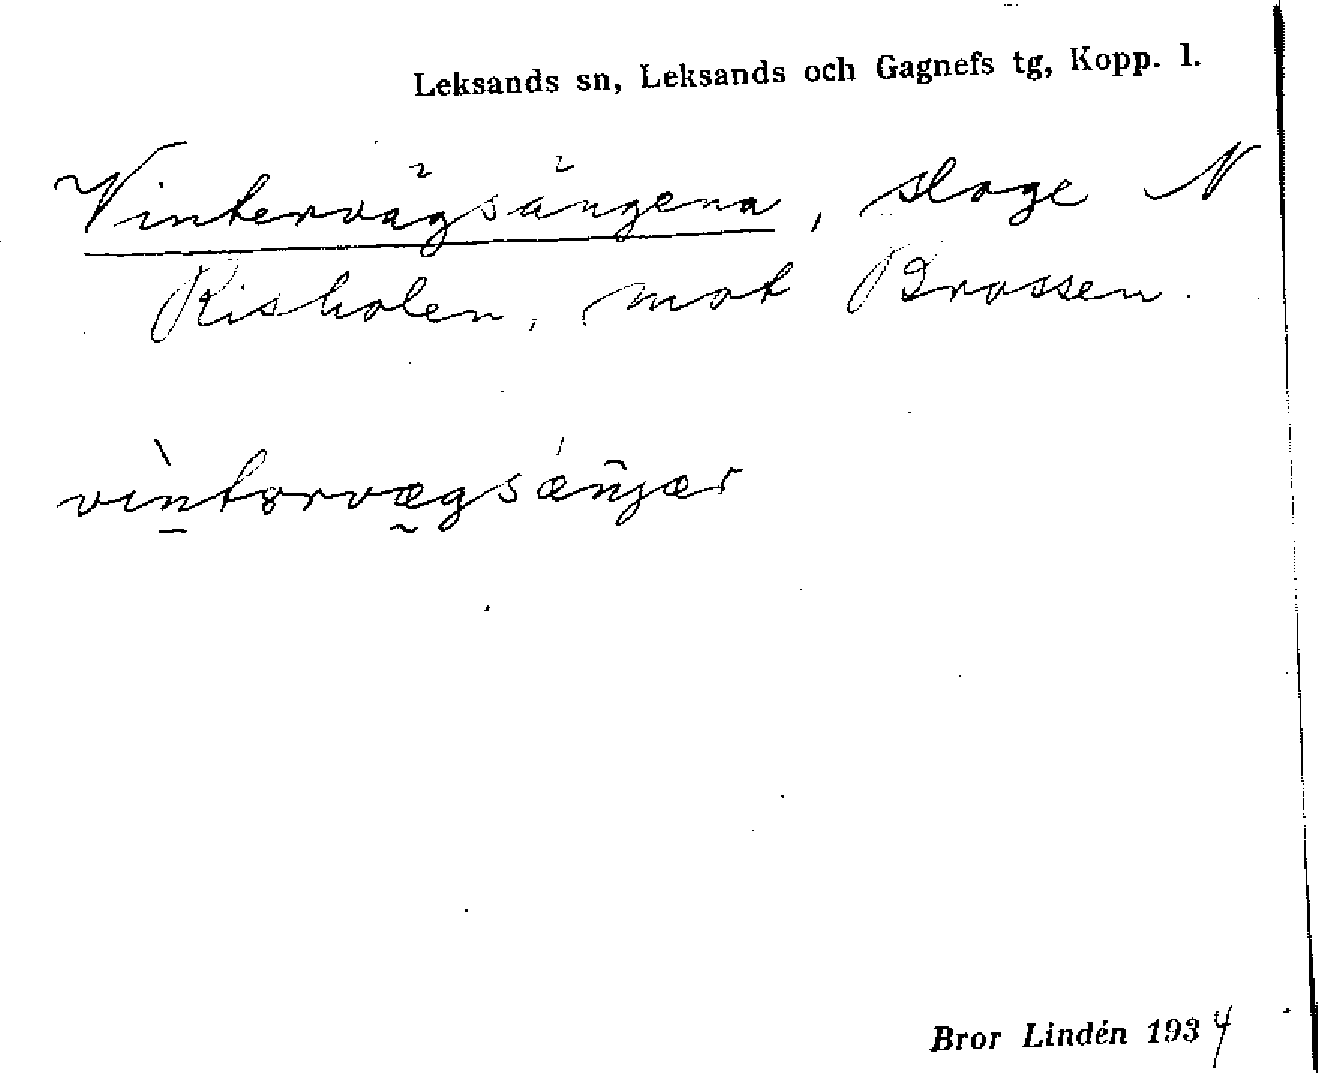 Leksands sn, Leksands och Gagnefs tg, Kopp. l.
Vintervägsängena, sloge N
Risholen, mot Brossen.
vìntərvægsǽŋjær
Bror Lindén 1934